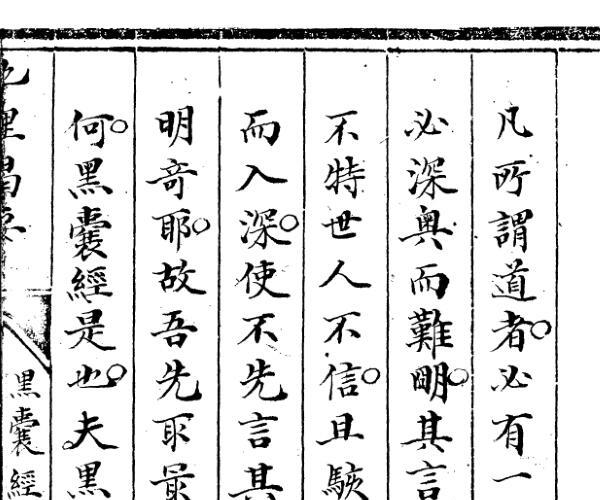 凡所謂道者○必有一
必深奧而難明○其言
不特世人不信○且駭
而入深○使不先言其
明竒耶○故吾先取最
何○黑囊經是也○夫黑
黑囊經